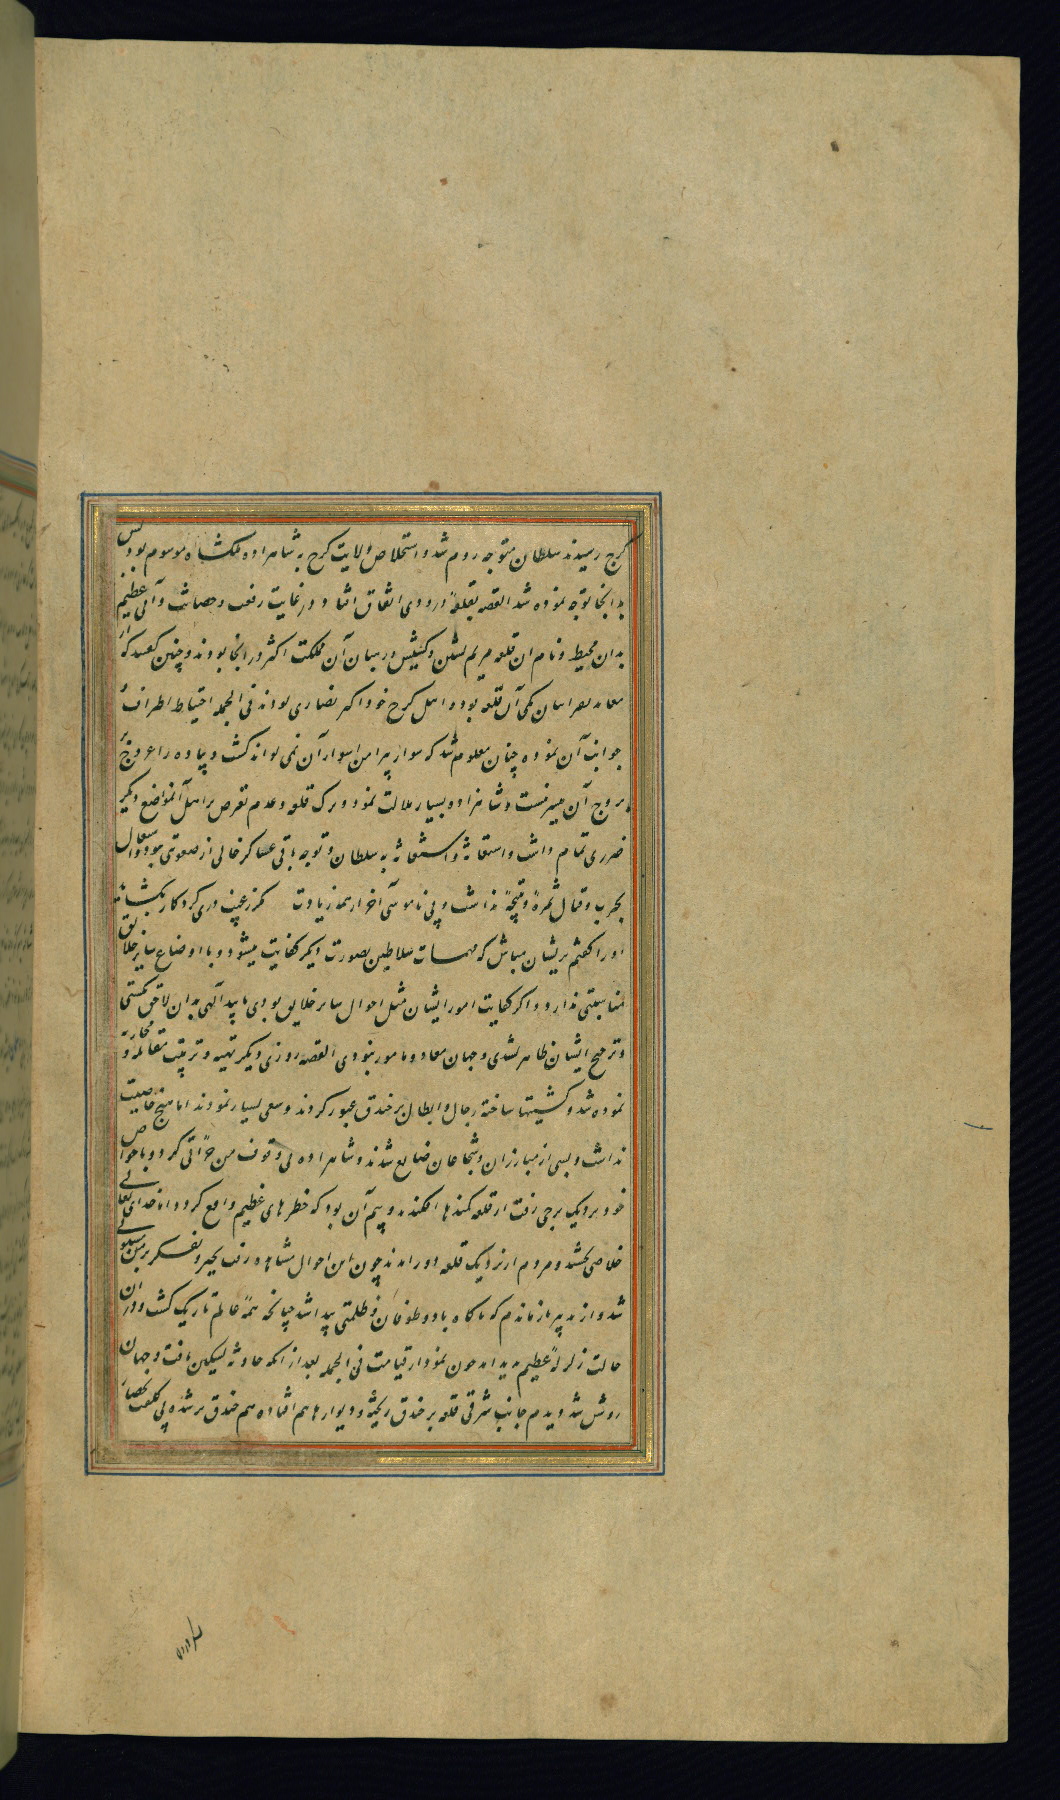 کرج رسیدند سلطان متوجه روم شد و استخلاص ولایت کرج به شاهزاده ملکشاه موسوم بود پس
بدانجا توجه نموده شد القصه بقلعهٔ ورودی اتفاق افتاد و در غایت رفعت و حصانت و آبی عظیم
بدان محیط و نام ان قلعه مریم نشین و کشیش و رهبان آن مملکت اکثر در انجا بودند و چنین گفتند که از
معابد نصرانیان یکی آن قلعه بود و اهل کرج خود اکثر نصاری بودند فی الجمله احتیاط اطراف و
جوانب آن نموده چنان معلوم شد که سوار پیرامن اسوار آن نمی تواند کشت و پیاده را عروج بر
بروج آن میسر نیست و شاهزاده بسیار ملالت نمود و ترک قلعه و عدم تعرض براهل آنمواضع دیگر
ضرری تمام داشت و استغاثه و استعانه به سلطان و توجه باقی عساکر خالی از صعوبتی نبود و اشتغال
بحرب و قتال ثمرهٔ و نتیجهٔ نداشت و بی ناموسی آخر از همه زیادت که زغیب دری کردگار بگشاید
اورا گفتم پریشان مباش که مهمات سلاطین بصورت دیگر کفایت میشود و با اوضاع سایر خلایق
مناسبتی ندارد و اگر کفایت امور ایشان مثل احوال سایر خلایق بودی تایید آلهی بدان لاحق نکشتی
و ترجیح ایشان ظاهر نشدی و جهان منقاد و مامور نبودی القصه روزی دیگر تهیه و ترتیب مقاتله و محاربه
نموده شد و کشتیها ساخته رجال و ابطال بر خندق عبور کردند و سعی بسیار نمودند اما هیچ خاصیت
نداشت و بسی از مبارزان و شجاعان ضایع شدند و شاهزاده بی وقوف من جرأتی کرد و با خواص
خود نزدیک برجی رفت از قلعه کمندها افکندند و بیم آن بود که خطرهای عظیم واقع کردد اما خدای تعالی
خلاصی بخشید و مردم از نزدیک قلعه دور امدند چون این احوال مشاهده رفت تحیر و تفکر بر من مستولی
شد و از تدبیر باز ماندم که ناکاه باد و طوفان و ظلمتی پیدا شد چنانکه همهٔ عالم تاریک کشت و در ان
حالت زلزلهٔ عظیم پدید امد چون نمودار قیامت فی الجمله بعد از آنکه حادثه تسکین یافت و جهان
روشن شد دیدم جانب شرقی قلعه بر خندق ریخته و دیوارها هم افتاده هم خندق پر شده بی کلفت حصار